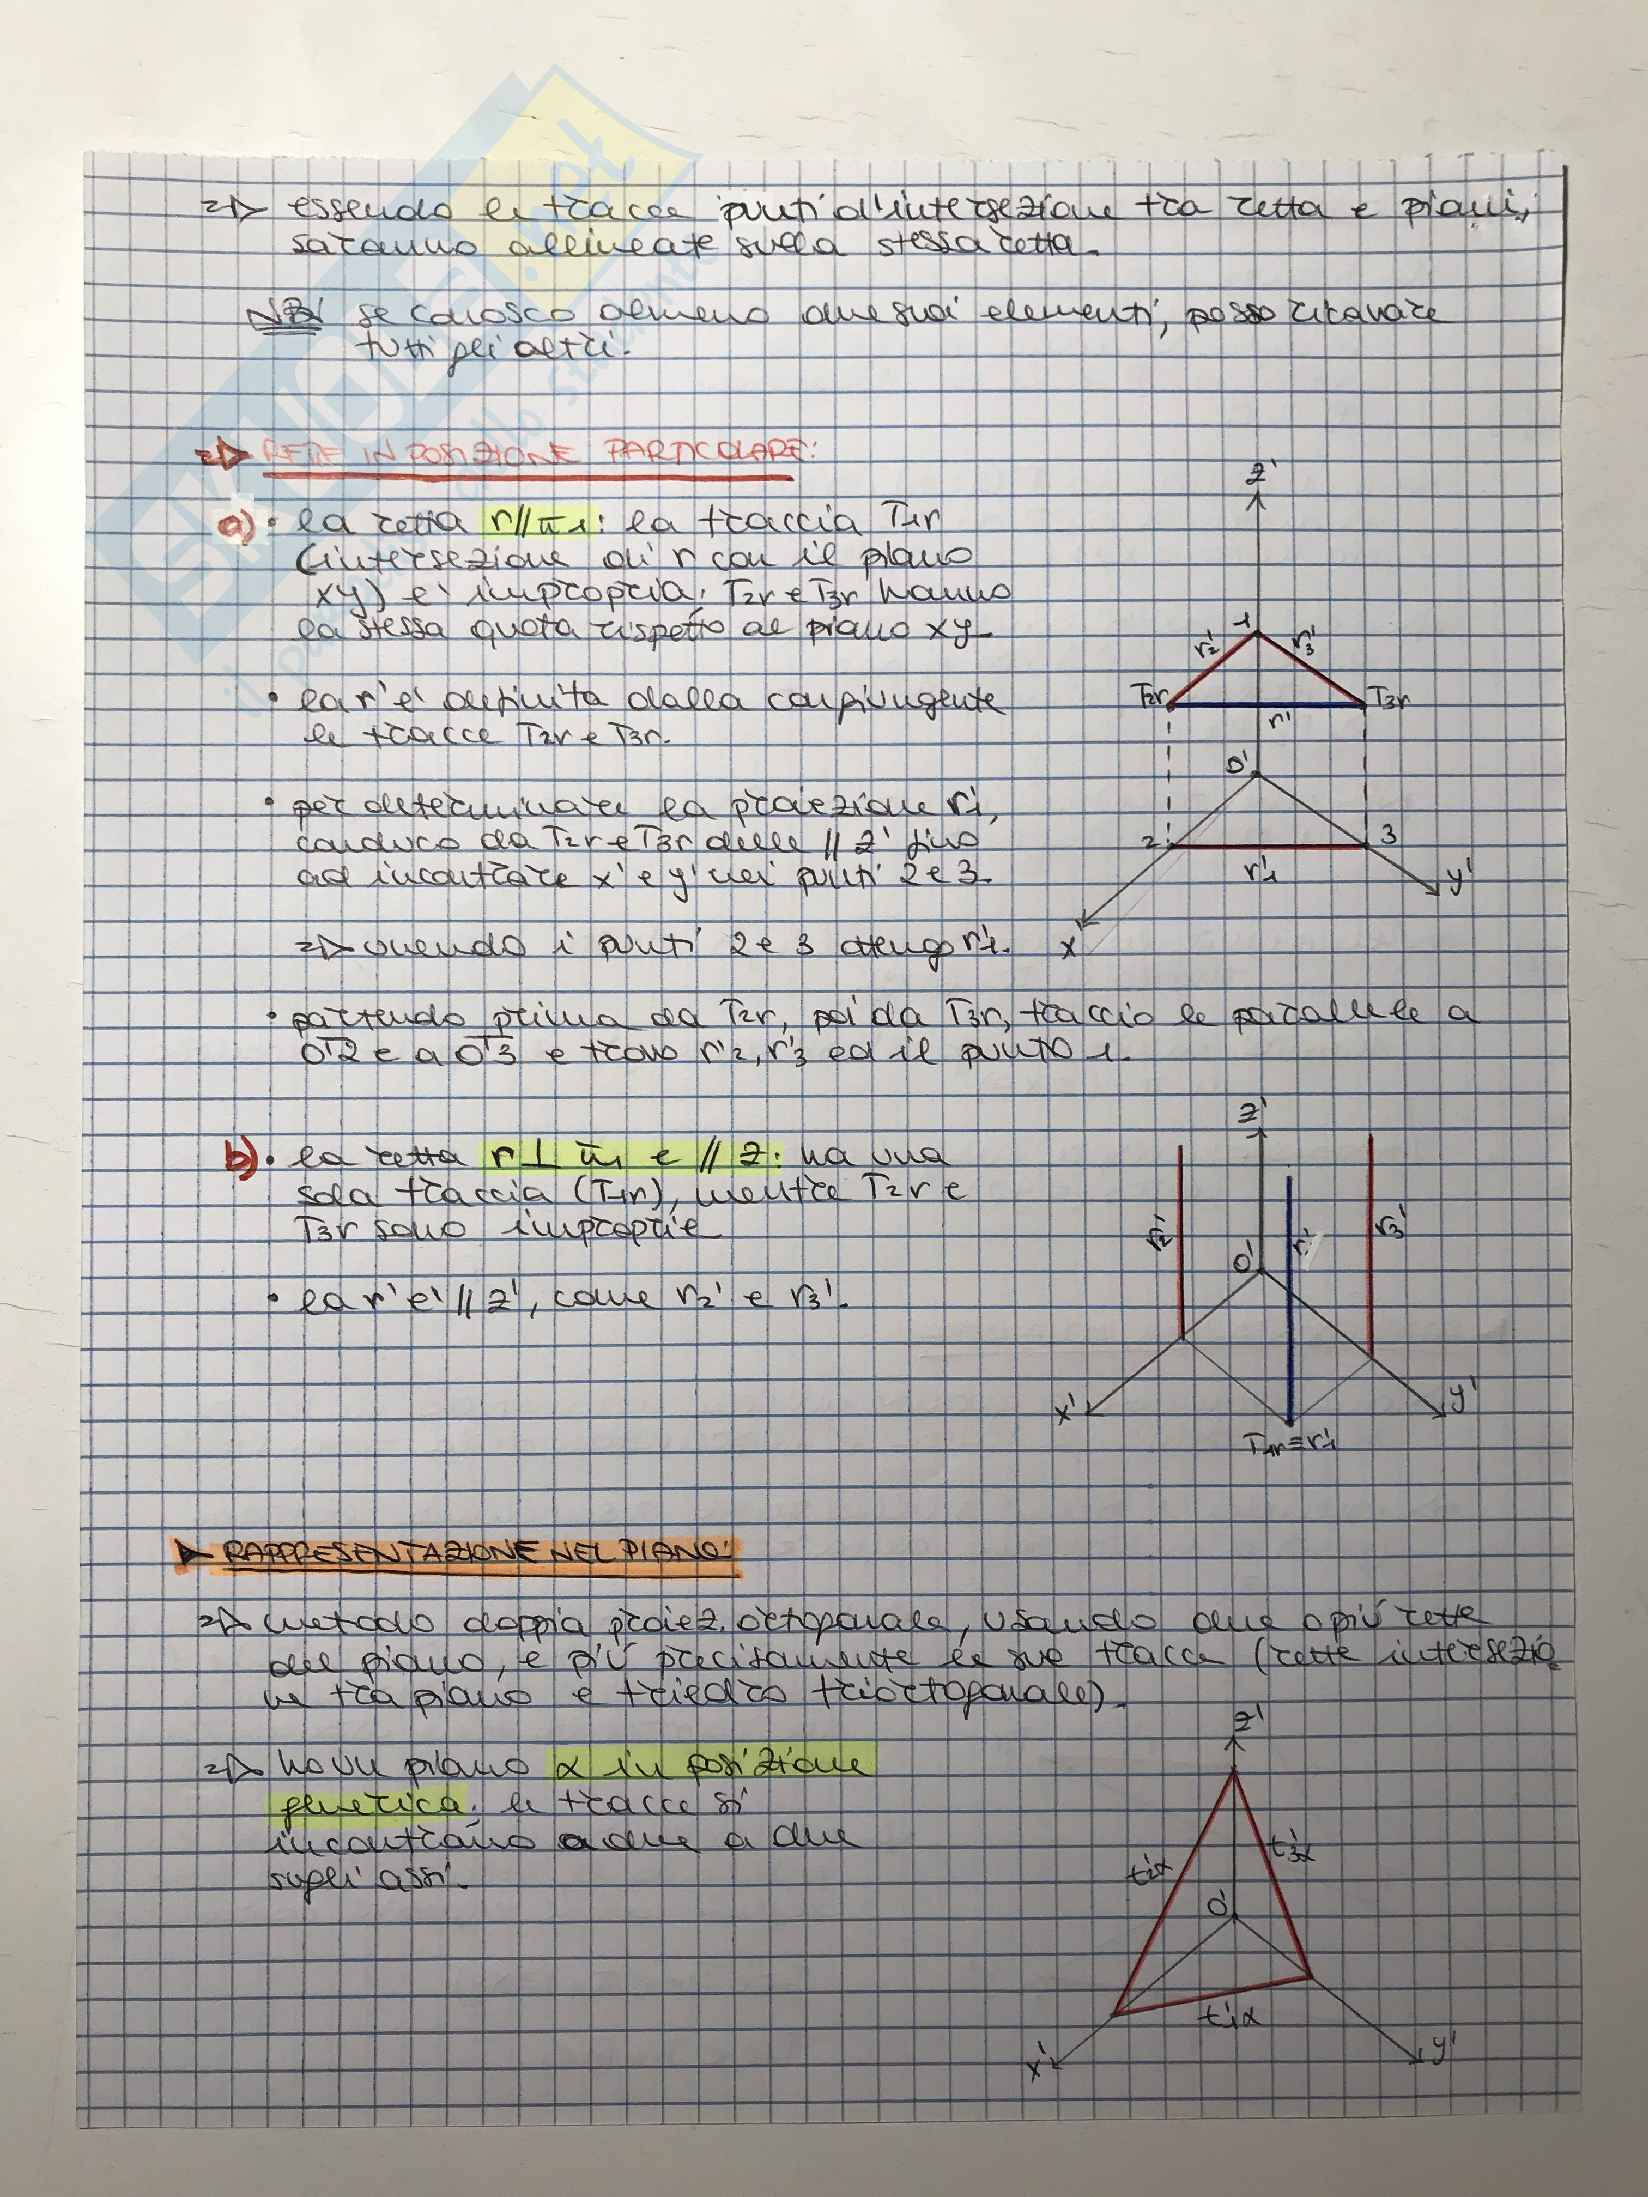 => essendo le tracce punti d'intersezione tra retta e piani,
saranno allineate sulla stessa retta.
NB: se conosco almeno due suoi elementi, posso ricavare
tutti gli altri.
=> RETTE IN POSIZIONE PARTICOLARE:
a) • la retta r//π1: la traccia T1r
(intersezione di r con il piano
xy) e' impropria; T2r e T3r hanno
la stessa quota rispetto al piano xy.
• la r' e' definita dalla congiungente
le tracce T2r e T3r.
• per determinare la proiezione r'1,
conduco da T2r e T3r delle // z' fino
ad incontrare x' e y' nei punti 2 e 3.
=> unendo i punti 2 e 3 ottengo r'1.
• partendo prima da T2r, poi da T3r, traccio le parallele a
O'2 e a O'3 e trovo r'2, r'3 ed il punto 1.
z'
1
r'2
r'3
T2r
T3r
r'
O'
2
3
r'1
y'
x
b) • la retta r⊥π1 e // z: ha una
sola traccia (T1r), mentre T2r e
T3r sono improprie
• la r' e' // z', come r2' e r3'.
z'
r2'
r'
r3'
O'
x'
y'
T1r≡r'1
► RAPPRESENTAZIONE NEL PIANO:
=> metodo doppia proiez. ortogonale, usando due o più rette
del piano, e più precisamente le sue tracce (rette intersezio
ne tra piano e triedro triortogonale).
=> ho un piano α in posizione
generica: le tracce si
incontrano a due a due
sugli assi.
z'
t'2α
t'3α
O'
t'1α
x'
y'
SKUOLA.net